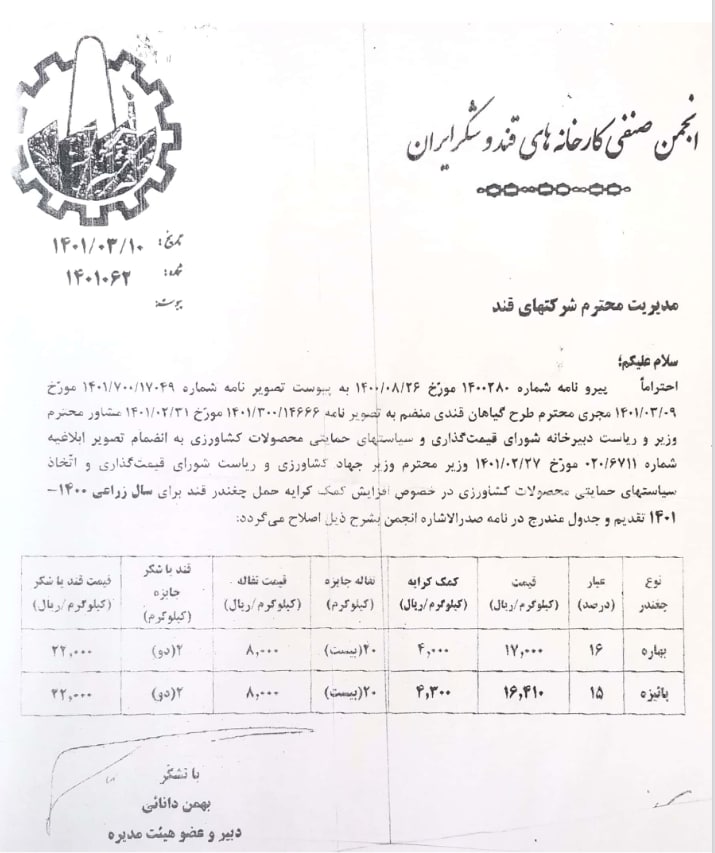 انجمن صنفی کارخانه های قند و شکر ایران
تاریخ: ۱۴۰۱/۰۳/۱۰
شماره: ۱۴۰۱۰۶۲
پیوست:
مدیریت محترم شرکتهای قند
سلام علیکم؛
احتراماً پیرو نامه شماره ۱۴۰۰۲۸۰ مورّخ ۱۴۰۰/۰۸/۲۶ به پیوست تصویر نامه شماره ۱۴۰۱/۷۰۰/۱۷۰۴۹ مورّخ
۱۴۰۱/۰۳/۰۹ مجری محترم طرح گیاهان قندی منضم به تصویر نامه ۱۴۰۱/۳۰۰/۱۴۶۶۶ مورّخ ۱۴۰۱/۰۲/۳۱ مشاور محترم
وزیر و ریاست دبیرخانه شورای قیمت‌گذاری و سیاستهای حمایتی محصولات کشاورزی به انضمام تصویر ابلاغیه
شماره ۰۲۰/۶۷۱۱ مورّخ ۱۴۰۱/۰۲/۲۷ وزیر محترم وزیر جهاد کشاورزی و ریاست شورای قیمت‌گذاری و اتّخاذ
سیاستهای حمایتی محصولات کشاورزی در خصوص افزایش کمک کرایه حمل چغندر قند برای سال زراعی ۱۴۰۰-
۱۴۰۱ تقدیم و جدول مندرج در نامه صدرالاشاره انجمن بشرح ذیل اصلاح می‌گردد:
نوع چغندر | عیار (درصد) | قیمت (کیلوگرم/ریال) | کمک کرایه (کیلوگرم/ریال) | تفاله جایزه (کیلوگرم) | قیمت تفاله (کیلوگرم/ریال) | قند یا شکر جایزه (کیلوگرم) | قیمت قند یا شکر (کیلوگرم/ریال)
بهاره | ۱۶ | ۱۷,۰۰۰ | ۴,۰۰۰ | ۲۰(بیست) | ۸,۰۰۰ | ۲(دو) | ۲۲,۰۰۰
پائیزه | ۱۵ | ۱۶,۴۱۰ | ۴,۳۰۰ | ۲۰(بیست) | ۸,۰۰۰ | ۲(دو) | ۲۲,۰۰۰
با تشکّر
بهمن دانائی
دبیر و عضو هیئت مدیره